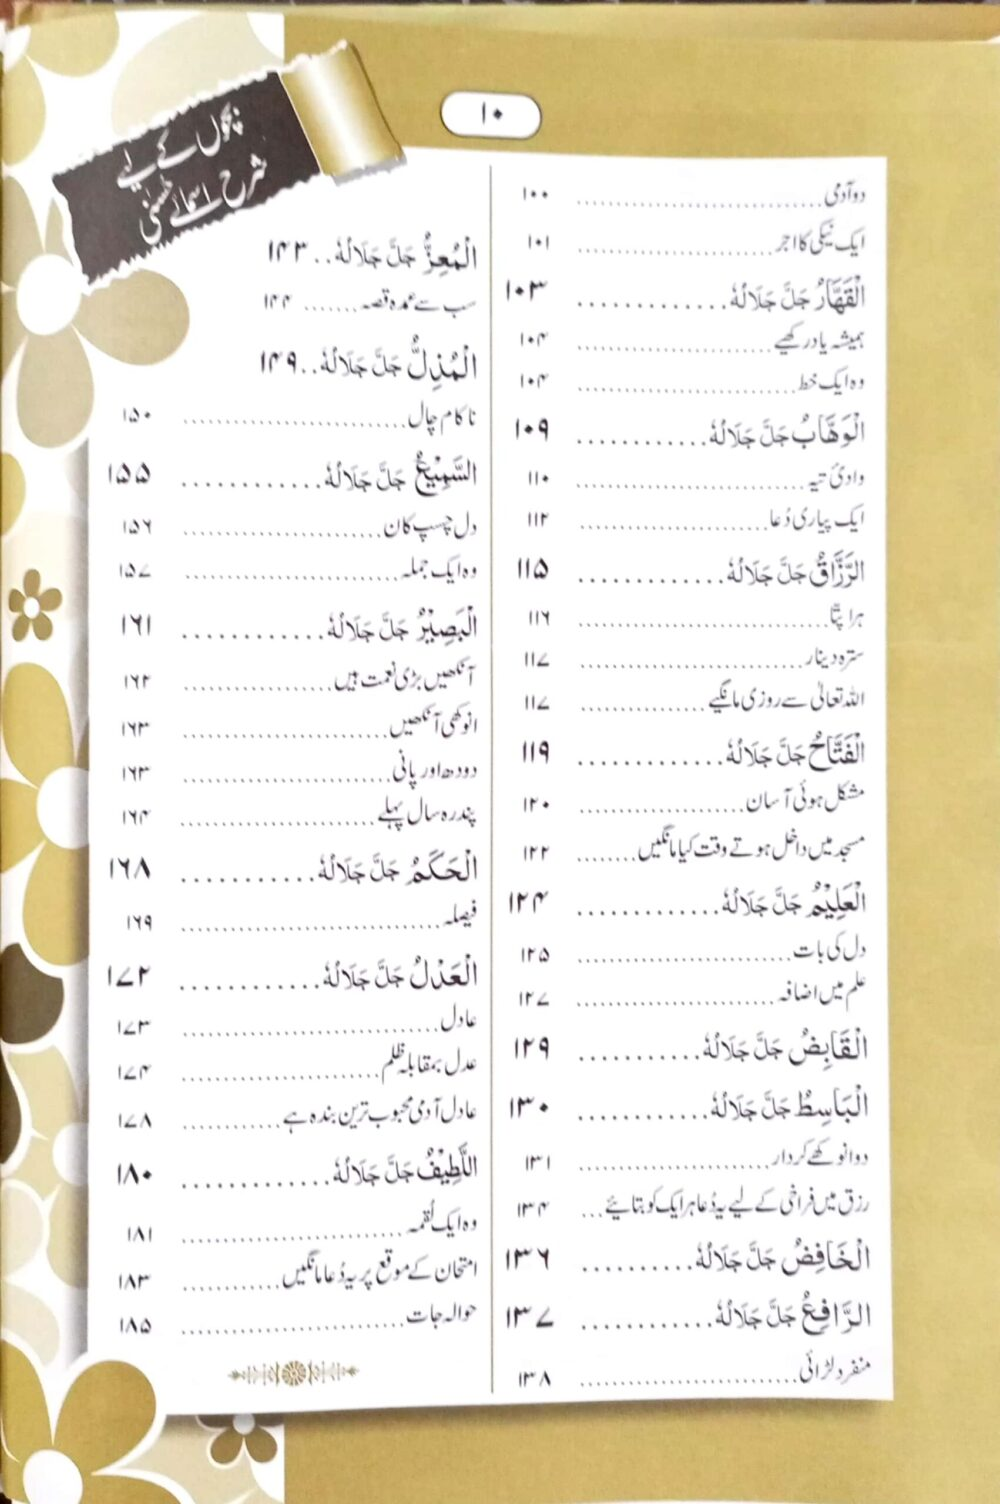 ۱۰
بچوں کے لیے
شرح اسمائے حسنیٰ
دو آدمی ۱۰۰
ایک نیکی کا اجر ۱۰۱
اَلْقَهَّارُ جَلَّ جَلَالُهٗ ۱۰۳
ہمیشہ یاد رکھیے ۱۰۴
وہ ایک خط ۱۰۴
اَلْوَهَّابُ جَلَّ جَلَالُهٗ ۱۰۹
وادیٔ تیہ ۱۱۰
ایک پیاری دُعا ۱۱۲
اَلرَّزَّاقُ جَلَّ جَلَالُهٗ ۱۱۵
ہرا پتّا ۱۱۶
سترہ دینار ۱۱۷
اللہ تعالیٰ سے روزی مانگیے ۱۱۷
اَلْفَتَّاحُ جَلَّ جَلَالُهٗ ۱۱۹
مشکل ہوئی آسان ۱۲۰
مسجد میں داخل ہوتے وقت کیا مانگیں ۱۲۲
اَلْعَلِيْمُ جَلَّ جَلَالُهٗ ۱۲۴
دل کی بات ۱۲۵
علم میں اضافہ ۱۲۷
اَلْقَابِضُ جَلَّ جَلَالُهٗ ۱۲۹
اَلْبَاسِطُ جَلَّ جَلَالُهٗ ۱۳۰
دو انوکھے کردار ۱۳۱
رزق میں فراخی کے لیے یہ دُعا ہر ایک کو بتائیے ۱۳۴
اَلْخَافِضُ جَلَّ جَلَالُهٗ ۱۳۶
اَلرَّافِعُ جَلَّ جَلَالُهٗ ۱۳۷
منفرد لڑائی ۱۳۸
اَلْمُعِزُّ جَلَّ جَلَالُهٗ ۱۴۳
سب سے عمدہ قصہ ۱۴۴
اَلْمُذِلُّ جَلَّ جَلَالُهٗ ۱۴۹
ناکام چال ۱۵۰
اَلسَّمِيْعُ جَلَّ جَلَالُهٗ ۱۵۵
دل چسپ کان ۱۵۶
وہ ایک جملہ ۱۵۷
اَلْبَصِيْرُ جَلَّ جَلَالُهٗ ۱۶۱
آنکھیں بڑی نعمت ہیں ۱۶۲
انوکھی آنکھیں ۱۶۳
دودھ اور پانی ۱۶۳
پندرہ سال پہلے ۱۶۴
اَلْحَكَمُ جَلَّ جَلَالُهٗ ۱۶۸
فیصلہ ۱۶۹
اَلْعَدْلُ جَلَّ جَلَالُهٗ ۱۷۲
عادل ۱۷۳
عدل بمقابلہ ظلم ۱۷۴
عادل آدمی محبوب ترین بندہ ہے ۱۷۸
اَللَّطِيْفُ جَلَّ جَلَالُهٗ ۱۸۰
وہ ایک لُقمہ ۱۸۱
امتحان کے موقع پر یہ دُعا مانگیں ۱۸۳
حوالہ جات ۱۸۵